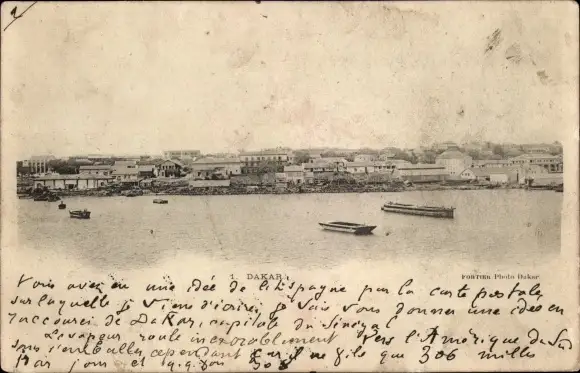 1. DAKAR.
FORTIER Photo Dakar
Vous avez eu une idée de l'Espagne par la carte postale
sur laquelle je viens d'écrire, je vais vous donner une idée en
raccourci de Dakar, capitale du Sénégal
Le vapeur roule inexorablement vers l'Amérique du Sud
sans s'emballer cependant car il ne file que 306 milles
par jour et q.q. fois 305